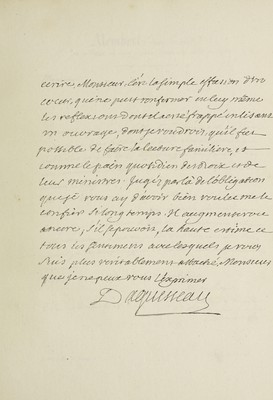 ecrire, Monsieur. C'est la simple effusion d'un
cœur, qui ne peut renfermer en luy même
les reflexions dont il a esté frappé en lisant
un ouvrage, dont je voudrois qu'il fust
possible de faire la lecture familiere, et
comme le pain quotidien des Rois et de
leurs ministres jugés par là de l'obligation
que je vous ay d'avoir bien voulu me le
confier si longtemps. Il augmenteroit
encore, s'il se pouvoit, la haute estime et
tous les sentimens avec lesquels je vous
suis plus veritablement attaché, Monsieur
que je ne peux vous l'exprimer
Daguesseau